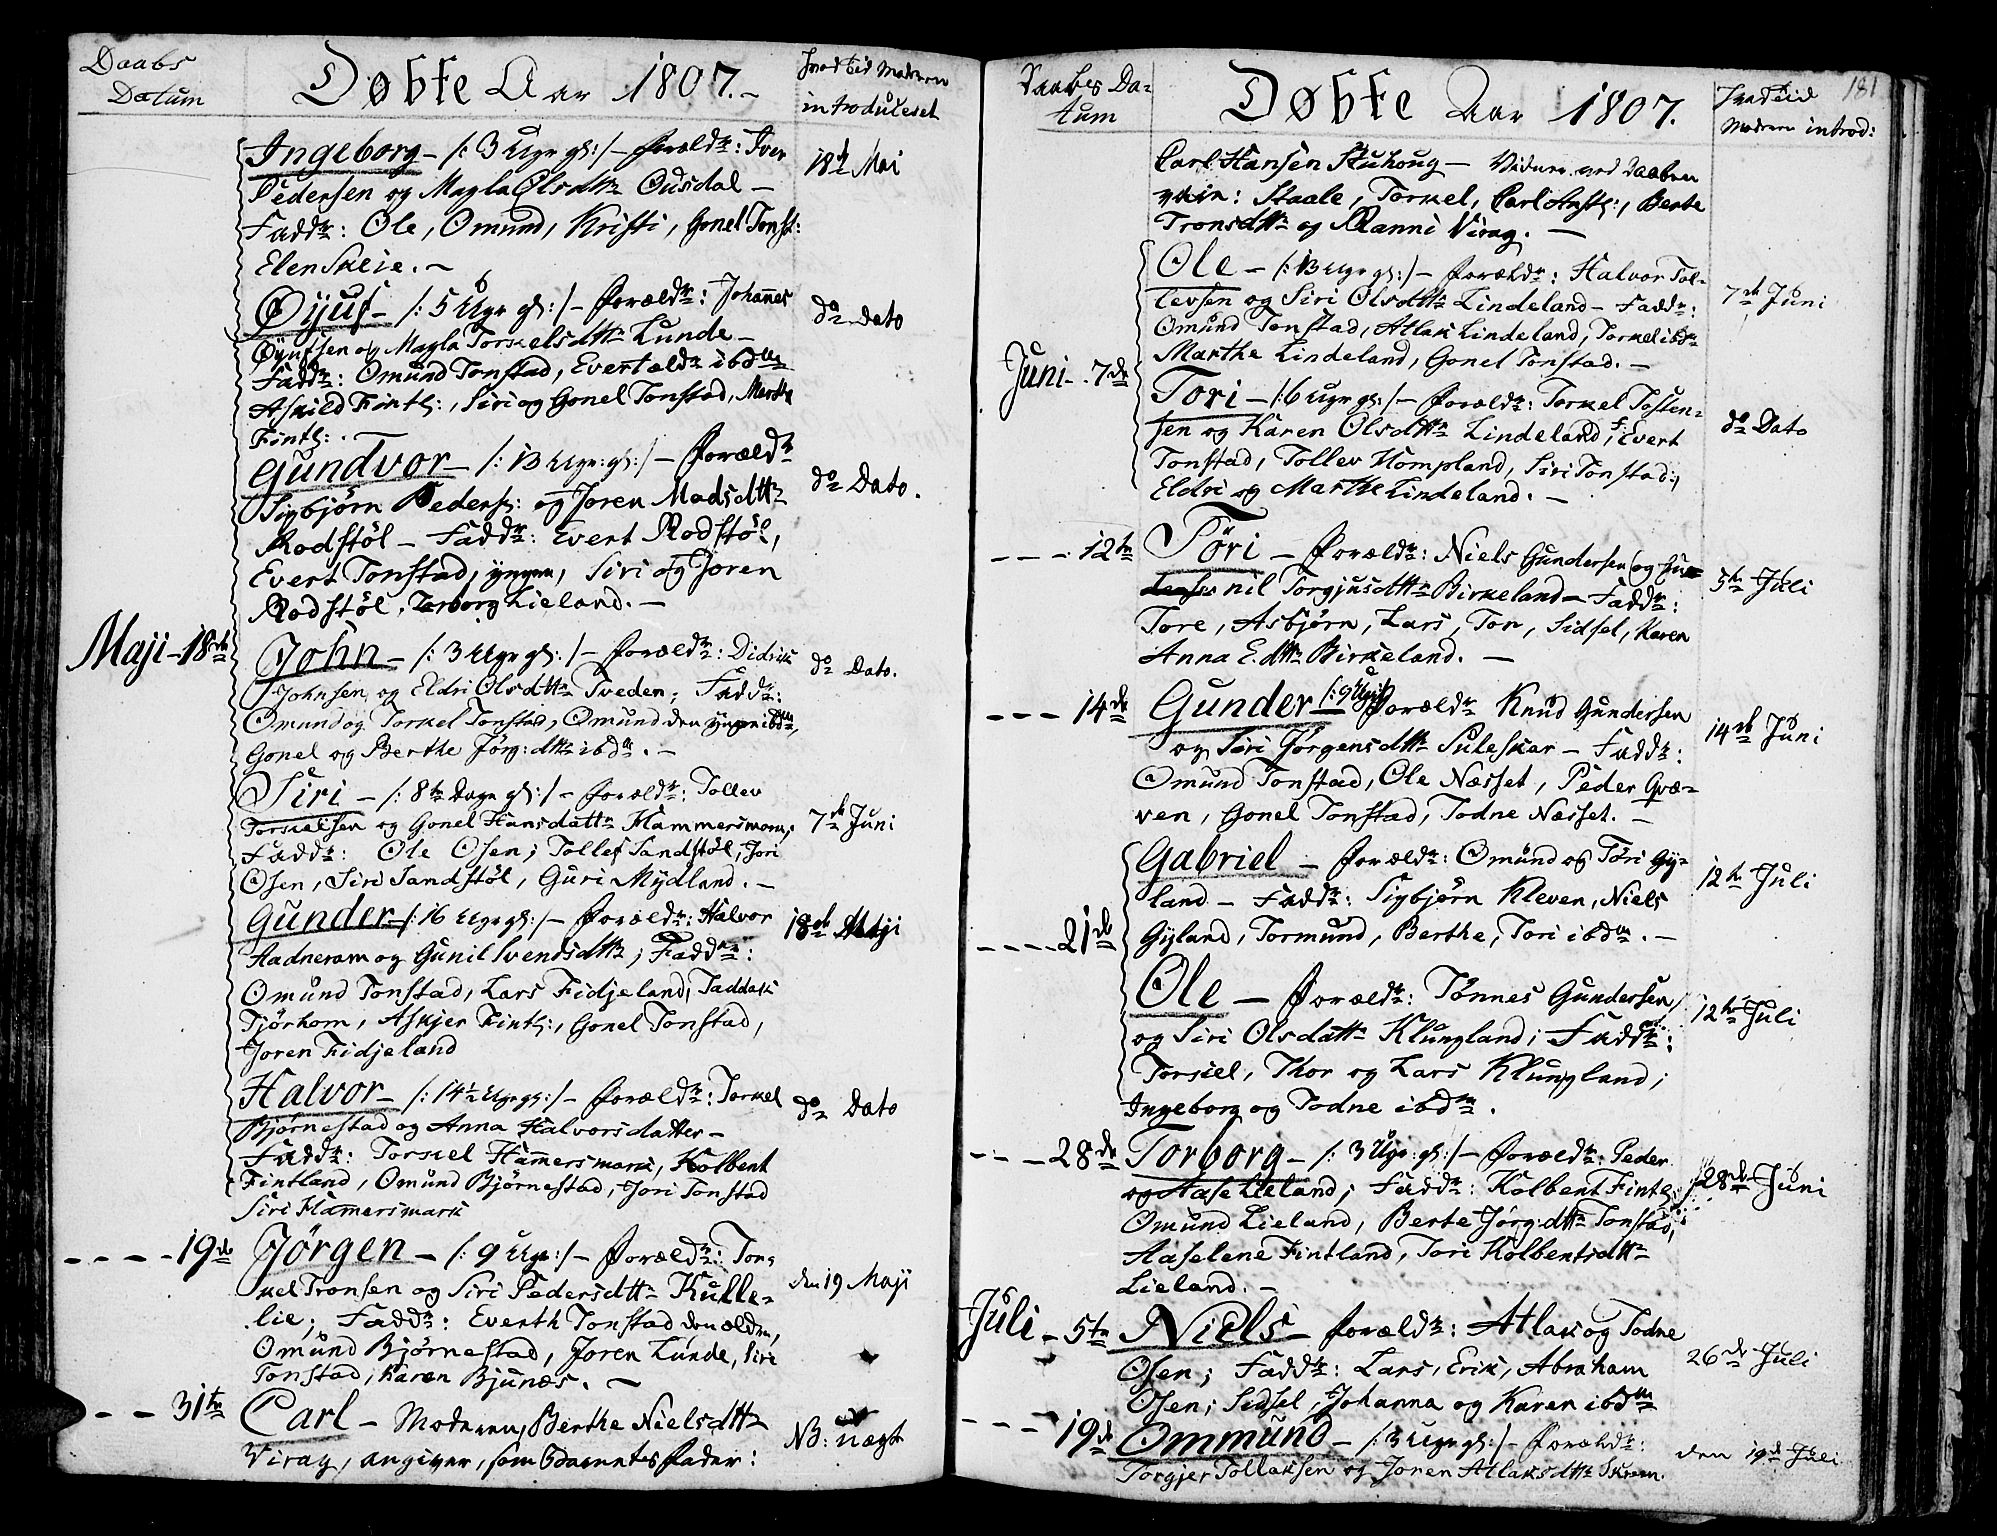 Daabs
Datum
Døbte Aar 1807.-
Hvad tid Moderen
introduceset
Ingeborg - /: 3 Uger gl: /- Foræld: Iver
Pedersen og Magla Olsdtr Ousdal -
Fadd: Ole, Omund, Kristi, Gonel Tonst:
Elen Skeie. -
18d Mai
Øÿuf - /: 5 Uger gl: /- Foræld: Johannes
Øÿufsen og Magla Torkelsdttr Lunde -
Fadd: Omund Tonstad, Evert æld ibdm
Askild Fintl:, Siri og Gonel Tonstad, Marthe
Fintl: . -
do Dato
Gundvor - /: 13 Uger: gl: /- Foræld
Sigbjørn Peders: og Joren Madsdttr
Rodstöl - Fadd: Evert Rodstöl,
Evert Tonstad, yngre, Siri og Joren
Rodstöl, Torborg Lieland. -
do Dato.
Maji - 18de
John - /: 3 Uger gl: /- Foræld: Didrik
Johnsen og Eldri Olsdttr Tveden; Fadd:
Omund og Torkel Tonstad, Omund den yngre ibdm,
Gonel og Berthe Jörg:dttr ibdm. -
do Dato.
Siri - /: 8te Dage gl: /- Foræld: Tollev
Torkelsen og Gonel Hansdattr Hammersmark,
Fadd: Ole Osen; Tollef Sandstöl, Jori
Osen, Siri Sandstöl, Guri Mÿdland. -
7de Juni
Gunder /: 16 Uger gl: /- Foræld: Halvor
Aadneram og Gunil Svendsdtt; Fadd:
Omund Tonstad, Lars Fidjeland, Taddak
Tjörhom, Askjer Fintl:, Gonel Tonstad,
Joren Fidjeland
18de Maji
Halvor - /: 14½ Uger gl: /- Foræld: Torkel
Bjørnestad og Anna Halvorsdatter -
Fadd: Torkel Hammersmark, Kolbent
Fintland, Omund Bjørnestad, Jori Tonstad
Siri Hamersmark
do Dato
- - - - 19de
Jörgen - /: 9 Uger: /- Foræld: Tor-
kel Tronsen og Siri Pedersdttr Kulle-
lie; Fadd: Everth Tonstad den ældre,
Omund Bjørnestad, Joren Lunde, Siri
Tonstad, Karen Bjunes. -
den 19 Maji
- - - 31te
Carl - Moderen, Berthe Nielsdttr
Virag, angiver, som Barnets Fader:
NB: nægt
Daabes Da-
tum
Døbte Aar 1807.
Hvad tid
Moderen introd:
181
Carl Hansen Stuhoug - Vidner ved Daaben
vare: Staale, Torkel, Carl Antl:, Berte
Tronsdttr og Ranni Virag. -
Ole - /: 13 Uger gl: /- Foræld: Halvor Tol-
levsen og Siri Olsdttr Lindeland - Fadd:
Omund Tonstad, Atlak Lindeland, Torkel ibdm
Marthe Lindeland, Gonel Tonstad. -
7de Juni
Juni - . 7de
Tori - /: 6 Uger gl: /- Foræld: Torkel Tosten-
sen og Karen Olsdttr Lindeland, F: Evert
Tonstad, Tollev Hompland, Siri Tonstad:,
Eldri og Marthe Lindeland. -
do Dato
- - - 12te
Töri - Foræld: Niels Gundersen og Gu-
nil Torgjusdttr Birkeland - Fadd:
Tore, Asbjørn, Lars, Ton, Sidsel, Karen
Anna E.dttr Birkeland. -
5te Juli
- - - 14de
Gunder /: 9 Uger / Foræld Knud Gundersen
og Siri Jörgensdttr Suleskar - Fadd:
Omund Tonstad, Ole Næsset, Peder Qvæ-
ven, Gonel Tonstad, Todne Næsset. -
14de Juni
Gabriel - Foræld: Omund og Töri Gy-
land - Fadd: Sigbjørn Kleven, Niels
Gyland, Tormund, Berthe, Tori ibdm. -
12te Juli
- - - - 21de
Ole - Foræld: Tønnes Gundersen
og Siri Olsdattr Klungland; Fadd:
Torkel, Thor og Lars Klungland;
Ingeborg og Todne ibdm.
12te Juli
- - - 28de
Torborg - /: 3 Uger: gl: /- Foræld: Peder
og Aase Lieland; Fadd: Kolbent Fintl:
Omund Lieland, Berte Jörg:dttr Tonstad,
Aaselene Fintland, Tori Kolbentsdttr
Lieland. -
28de Juni
Juli - 5te
Niels - Foræld: Atlak og Todne
Osen; Fadd: Lars, Erik, Abraham
Osen; Sidsel, Johanna og Karen ibdm
26de Juli
- - - 19de
Ommund - /: 3 Uger gl: /- Foræld:
Torgjer Tollaksen og Joren Atlaksdttr
den 19de Juli